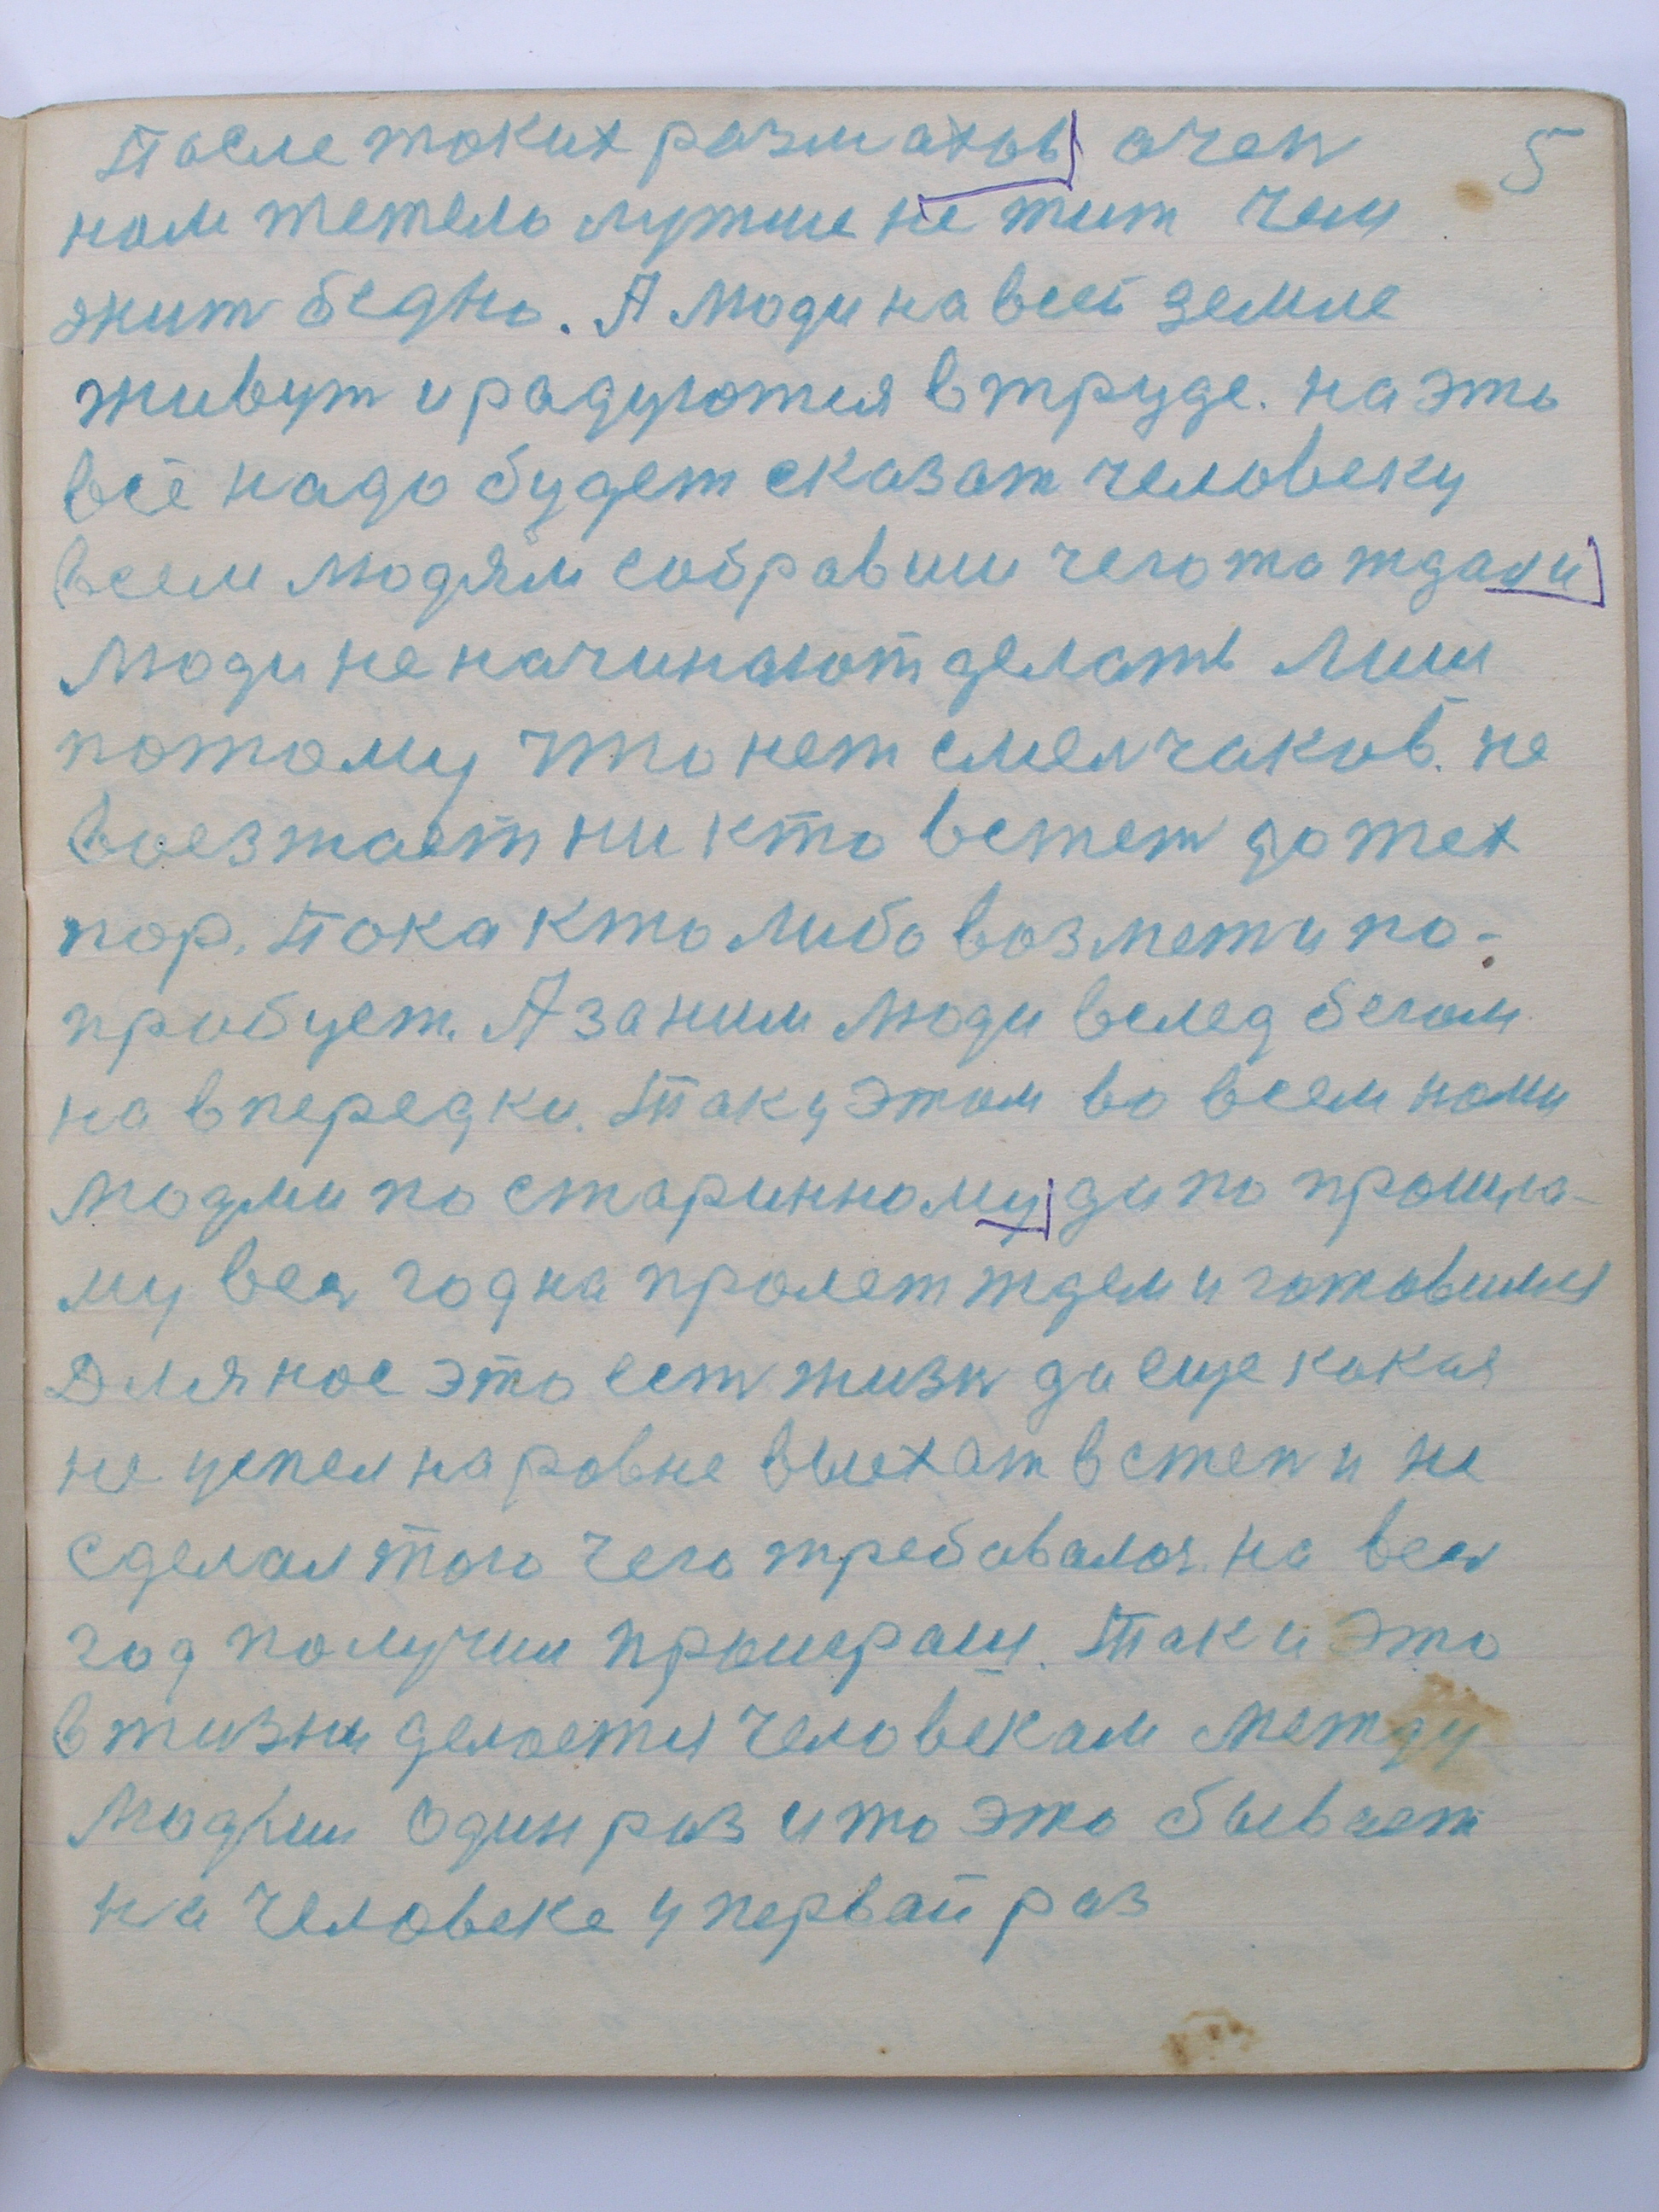 После таких размахов очен 5
нам тежело лутше не жит чем
жит бедно. А люди на всей земле
живут и радуются в труде. на это
всё надо будет сказат человеку
всем людям собравши чегото ждали
люди не начинают делать лиш
потому что нет смелчаков. не
воезжает ни кто встеп до тех
пор. Пока кто либо возмет и по-
пробует. А за ним люди вслед бегом
на впередки. Так у этом во всем нами
людми по старинному да по прошло-
му вес год на пролет ждем и готовимся
Для нас это ест жизн да еще какая
не успел на ровне выехат в степ и не
сделал того чего требовалос на вес
год получил проиграш. Так и это
в жизни делается человекам между
людми один раз и то это бывает
на человеке у первай раз